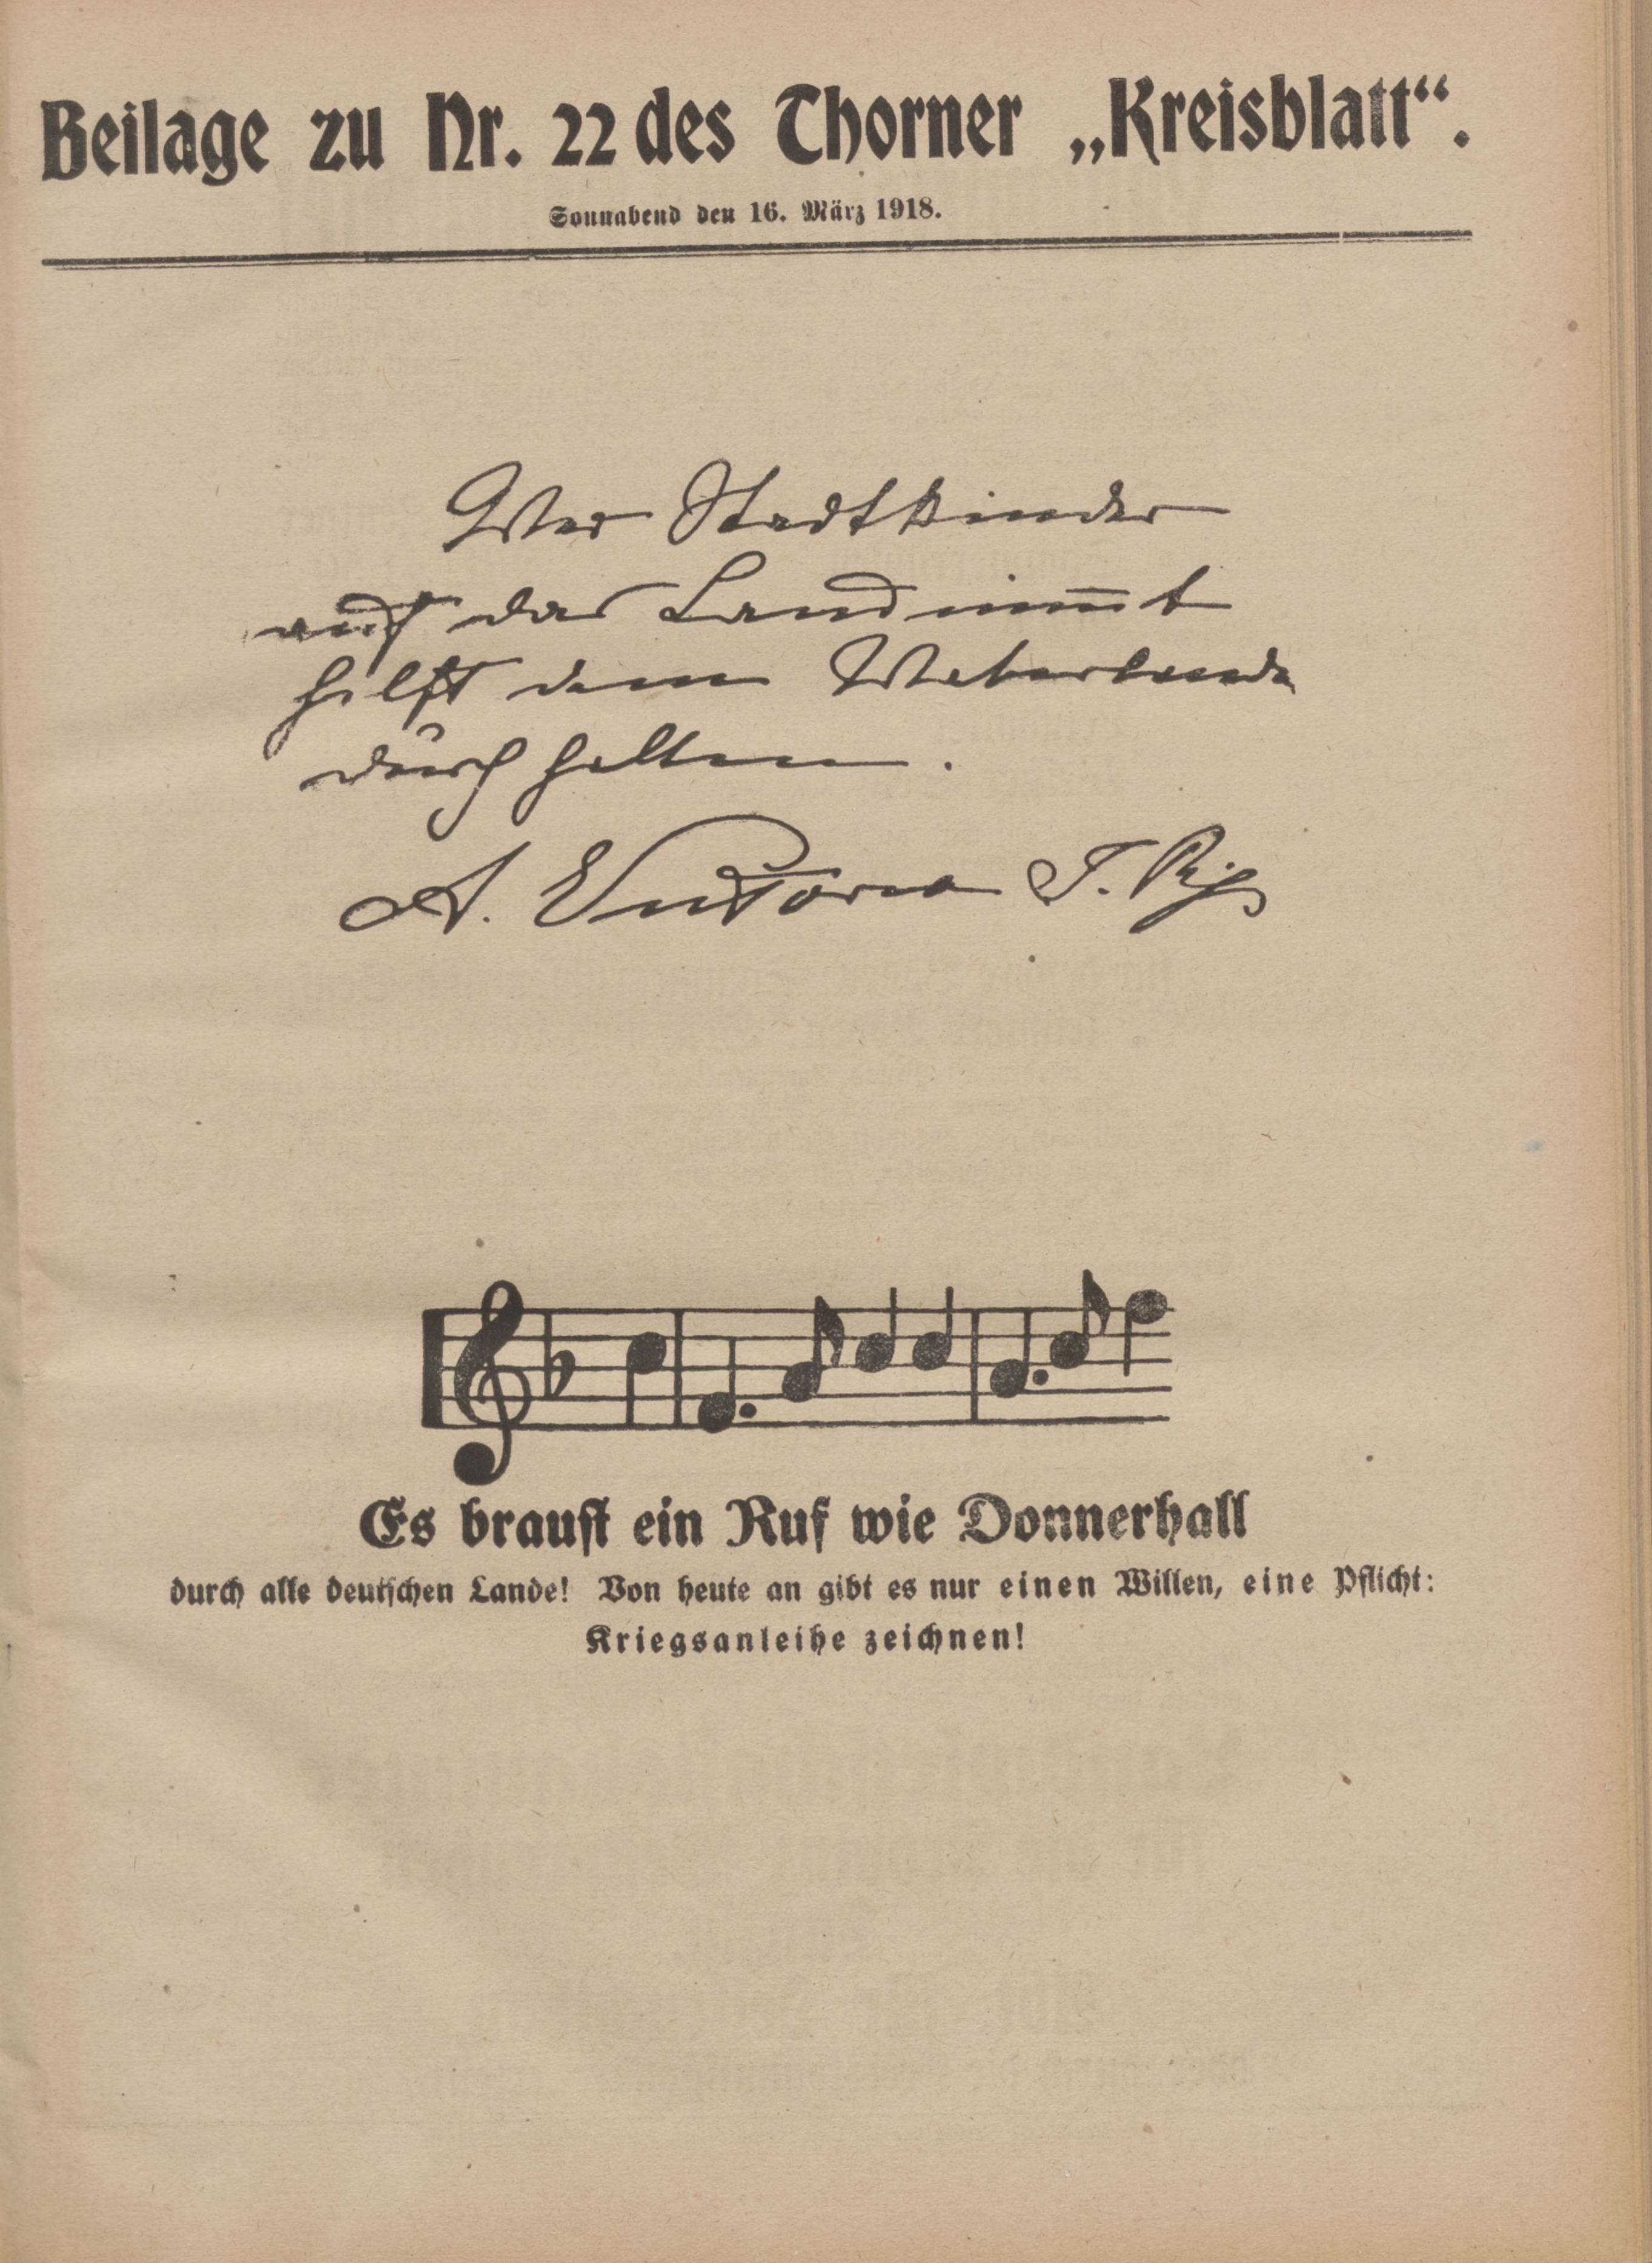 Beilage zu Nr. 22 des Thorner „Kreisblatt“.
Sonnabend den 16. März 1918.
Wer Stadtkinder
auf das Land nim̅t
hilft dem Vaterlande
durchhalten.
A. Victoria I. R.
Es braust ein Ruf wie Donnerhall
durch alle deutschen Lande! Von heute an gibt es nur einen Willen, eine Pflicht:
Kriegsanleihe zeichnen!